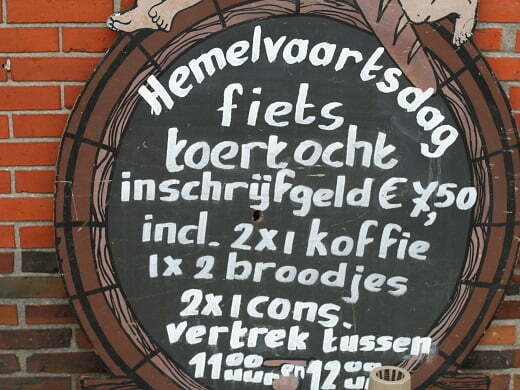 Hemelvaartsdag
fiets
toertocht
inschrijfgeld € 7,50
incl. 2x1 koffie
1x2 broodjes
2x1 cons.
vertrek tussen
11⁰⁰ uur en 12⁰⁰ u